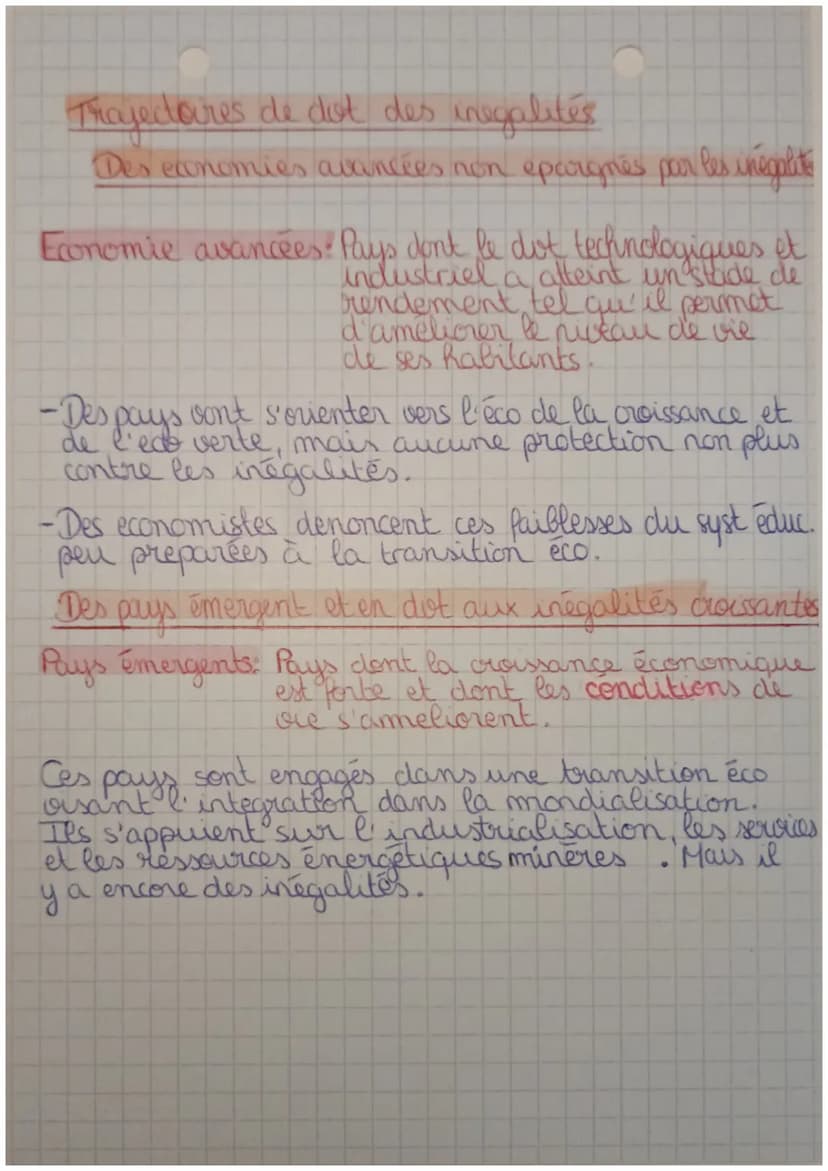 Trajectoires de dvt des inegalités
Des economies avancées non epargnés par les inégalité
Economie avancées: Pays dont le dvt technologiques et
industriel a atteint un stade de
rendement tel qu'il permet
d'améliorer le niveau de vie
de ses habitants.
-Des pays vont s'orienter vers l'éco de la croissance et
de l'eco verte, mais aucune protection non plus
contre les inégalités.
-Des economistes denoncent ces faiblesses du syst éduc.
peu preparées à la transition éco.
Des pays émergent et en dvt aux inégalités croissantes
Pays émergents: Pays dont la croissance économique
est forte et dont les conditions de
vie s'ameliorent.
Ces pays sont engagés dans une transition éco
visant l'integration dans la mondialisation.
Ils s'appuient sur l'industrialisation, les services
et les ressources énergétiques minères . Mais il
y a encore des inégalités.